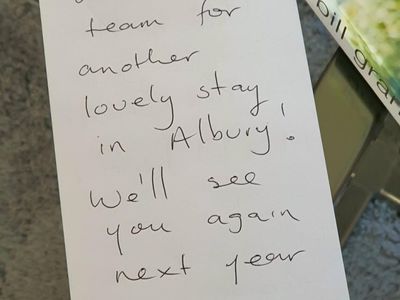 team for
another
lovely stay
in Albury!
We'll see
you again
next year
bill gran